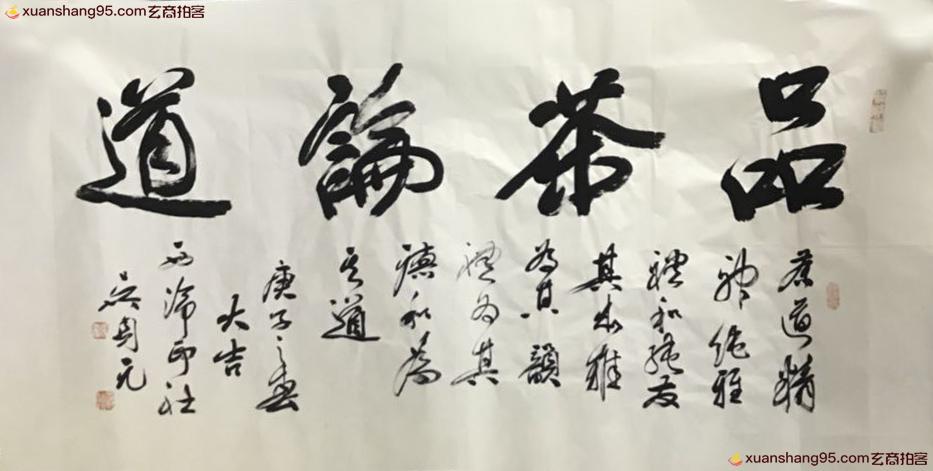 xuanshang95.com玄商拍客
品茶論道
茶道精
神純雅
禮和純為
其本雅
為其韻
禮為其
德和為
其道
庚子之春
大吉
西泠印社
吳元
xuanshang95.com玄商拍客